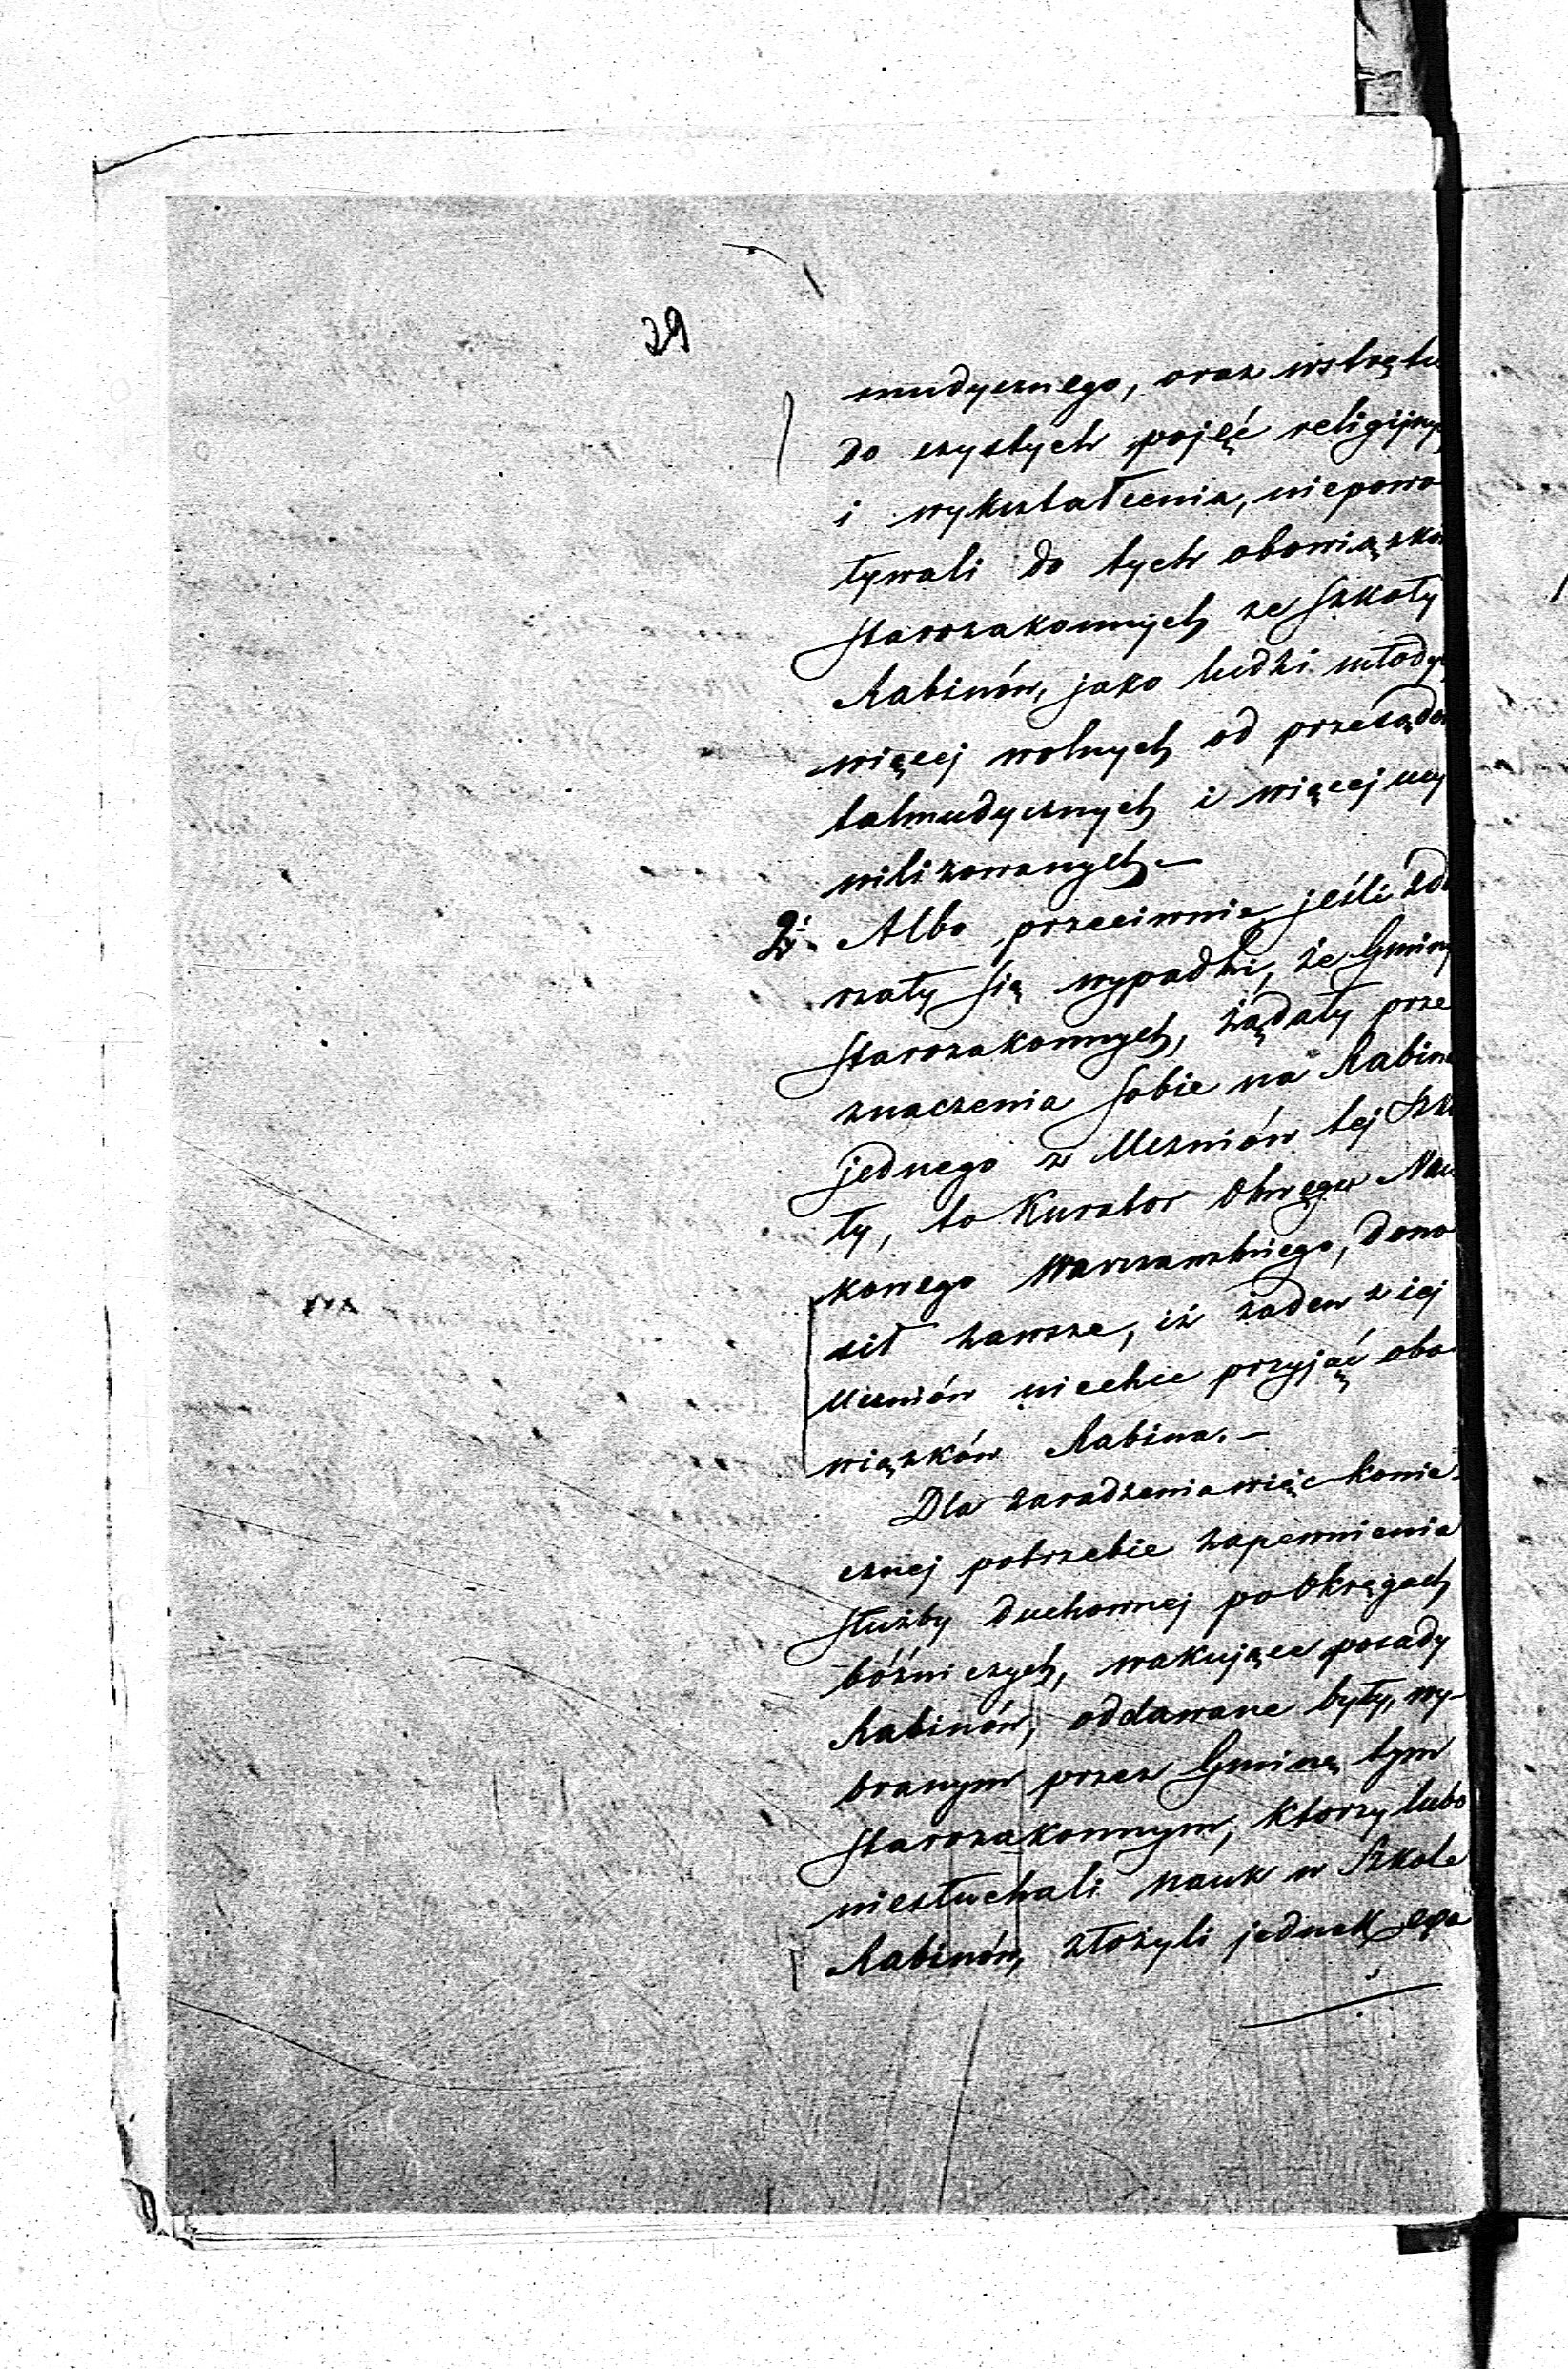 29
mudycznego, oraz wstrętu
do czystych pojęć religijny
i wykształcenia, niepowo
ływali do tych obowiązkó
Starozakonnych ze Szkoły
Rabinów, jako ludzi młody
więcej wolnych od przesądó
talmudycznych i więcej ucy
wilizowanych.—
2. Albo przeciwnie, jeśli zda
rzały się wypadki, że Gminy
Starozakonnych, żądały prze
znaczenia sobie na Rabina
jednego z Uczniów tej Szko
ły, to Kurator Okręgu Nau
kowego Warszawskiego, dono
sił zawsze, iż żaden z jej
Uczniów niechce przyjąć obo
wiązków Rabina.—
Dla zaradzenia więc konie
cznej potrzebie zapewnienia
służby duchownej po Okręgach
bóżniczych, wakujące posady
Rabinów, oddawane były, wy-
branym przez Gminę tym
Starozakonnym, którzy lubo
niesłuchali nauk w Szkole
Rabinów, złożyli jednak